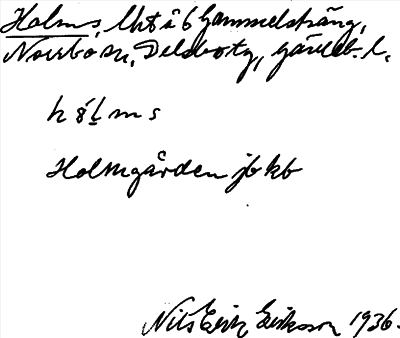 Holms, lht å 6 Gammelsträng,
Norrbo sn, Delsbo tg, Gävleb. l.
hólms
Holmgården jb kb
Nils Erik Eriksson 1936.